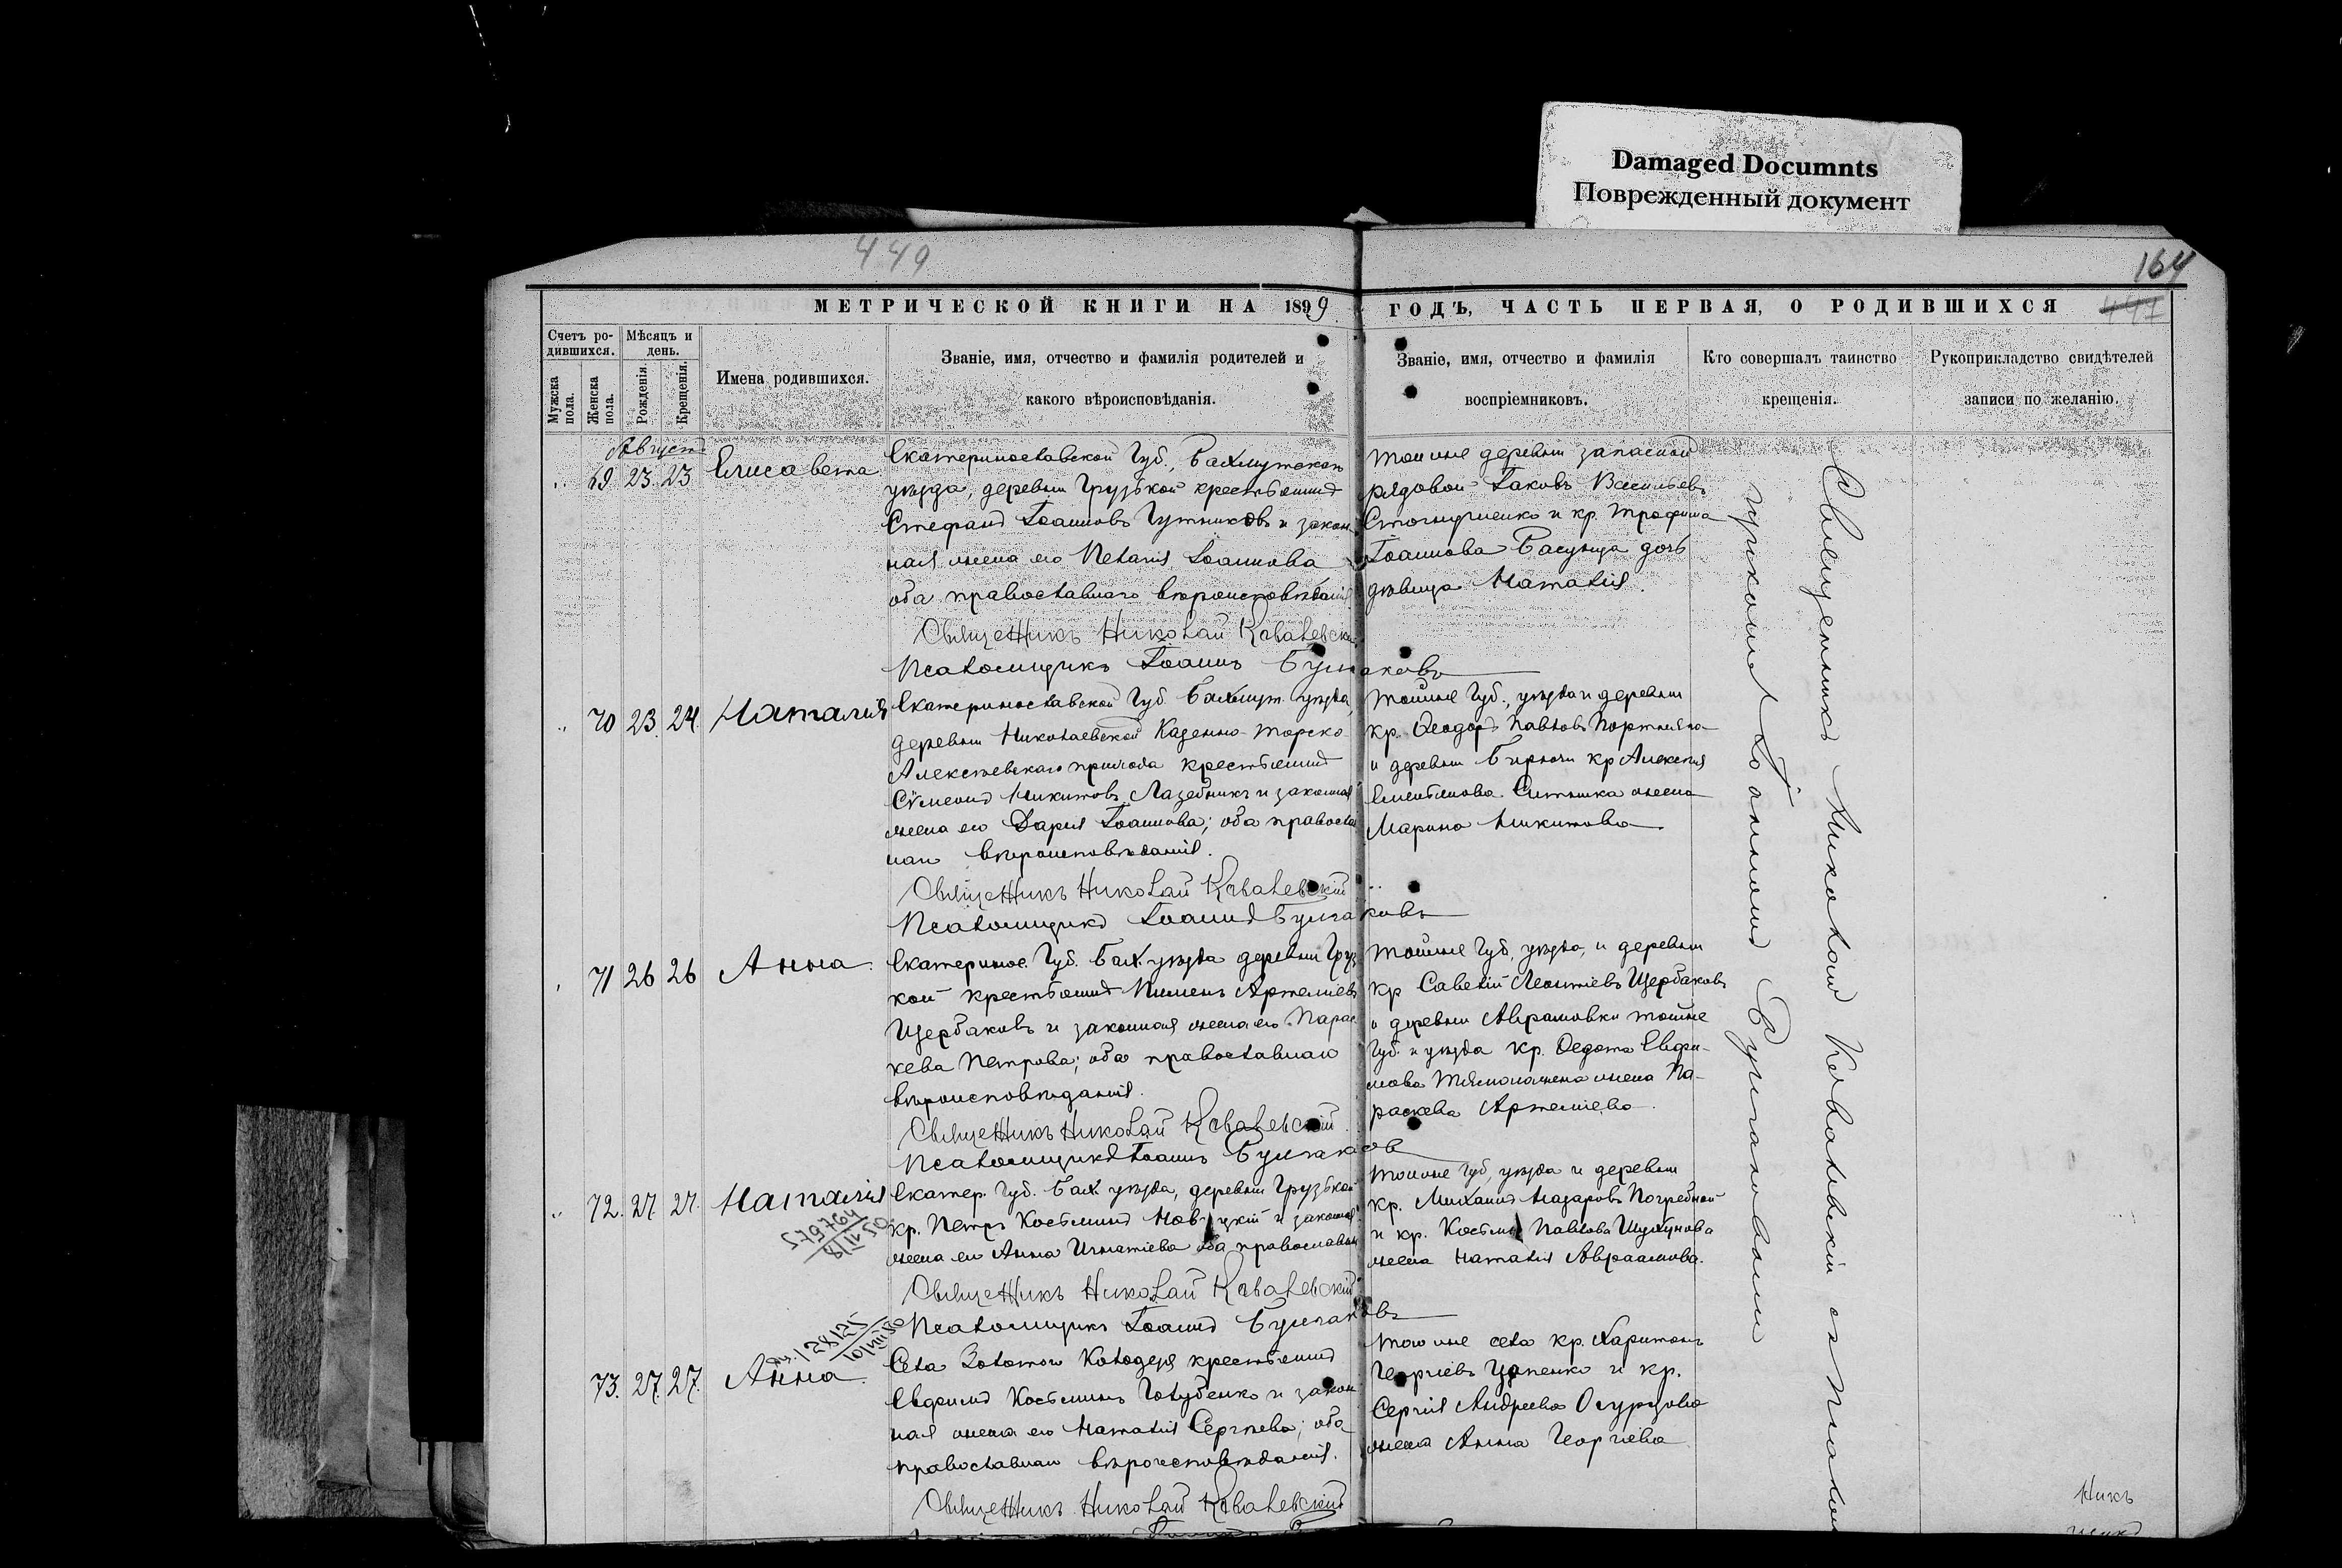 Damaged Documnts
Поврежденный документ
449
164
МЕТРИЧЕСКОЙ КНИГИ НА 1899 ГОДЪ, ЧАСТЬ ПЕРВАЯ, О РОДИВШИХСЯ
447
Счетъ ро-
дившихся.
Мужска
пола.
Женска
пола.
Мѣсяцъ и
день.
Рожденія.
Крещенія.
Имена родившихся.
Званіе, имя, отчество и фамилія родителей и
какого вѣроисповѣданія.
Званіе, имя, отчество и фамилія
воспріемниковъ.
Кто совершалъ таинство
крещенія.
Рукоприкладство свидѣтелей
записи по желанію.
Августъ
69 23 23 Елисавета
Екатеринославской Губ., Бахмутскаго
уѣзда, деревни Грузской крестьянинъ
Стефанъ Іоанновъ Гутниковъ и закон-
ная жена его Пелагія Іоаннова
оба православнаго вѣроисповѣданія
тойже деревни запасной
рядовой Іаковъ Васильевъ
и кр. Трофима
Іоаннова дочь
дѣвица Наталія.
Священникъ Николай Ковалевскій
Псаломщикъ Іоаннъ Булгаковъ
70 23. 24. Наталія
Екатеринославской Губ. Бахмут. уѣзда,
деревни Николаевской Казенно-Торско-
Алексѣевскаго прихода крестьянинъ
Сѵмеонъ Никитовъ Лазебникъ и законная
жена его Дарія Іоаннова; оба православ
наго вѣроисповѣданія.
тойже Губ., уѣзда и деревни
кр. Ѳеодоръ Павловъ
и деревни кр Алексія
Емельянова Ситника жена
Марина Никитова
Священникъ Николай Ковалевскій
Псаломщикъ Іоаннъ Булгаковъ
71 26 26 Анна.
Екатеринос. Губ. Бах. уѣзда деревни Груз
кой крестьянинъ Пименъ Артеміевъ
Щербаковъ и законная жена его Парас
кева Петрова; оба православнаго
вѣроисповѣданія.
тойже Губ, уѣзда, и деревни
кр Савелій Леонтіевъ Щербаковъ
и деревни Аврамовки тойже
Губ. и уѣзда кр. Ѳедота Евфи-
мова жена Па-
раскева Артеміева.
Священникъ Николай Ковалевскій.
Псаломщикъ Іоаннъ Булгаков
72. 27. 27. Наталія
579764
8/II 50
Екатер. Губ. Бах уѣзда, деревни Грузской
кр. Петръ Косьминъ и законная
жена его Анна Игнатіева оба православн
тойже Губ, уѣзда и деревни
кр. Михаилъ Назаровъ Погребной
и кр. Косьмы Павлова
жена Наталія Авраамова.
Священникъ Николай Ковалевскій
Псаломщикъ Іоаннъ Булгаковъ
128125
73. 27. 27. Анна.
Села Золотого Колодезя крестьянинъ
Евфимъ Косьминъ Голубенко и закон-
ная жена его Наталія Сергѣева; оба
православнаго вѣроисповѣданія.
того же села кр. Харитонъ
Георгіевъ и кр.
Сергія Андреева Огурцова
жена Анна Георгіева
Священникъ Николай Ковалевскій
Священникъ Николай Ковалевскій съ псалом
щикомъ Іоанномъ Булгаковымъ
никъ